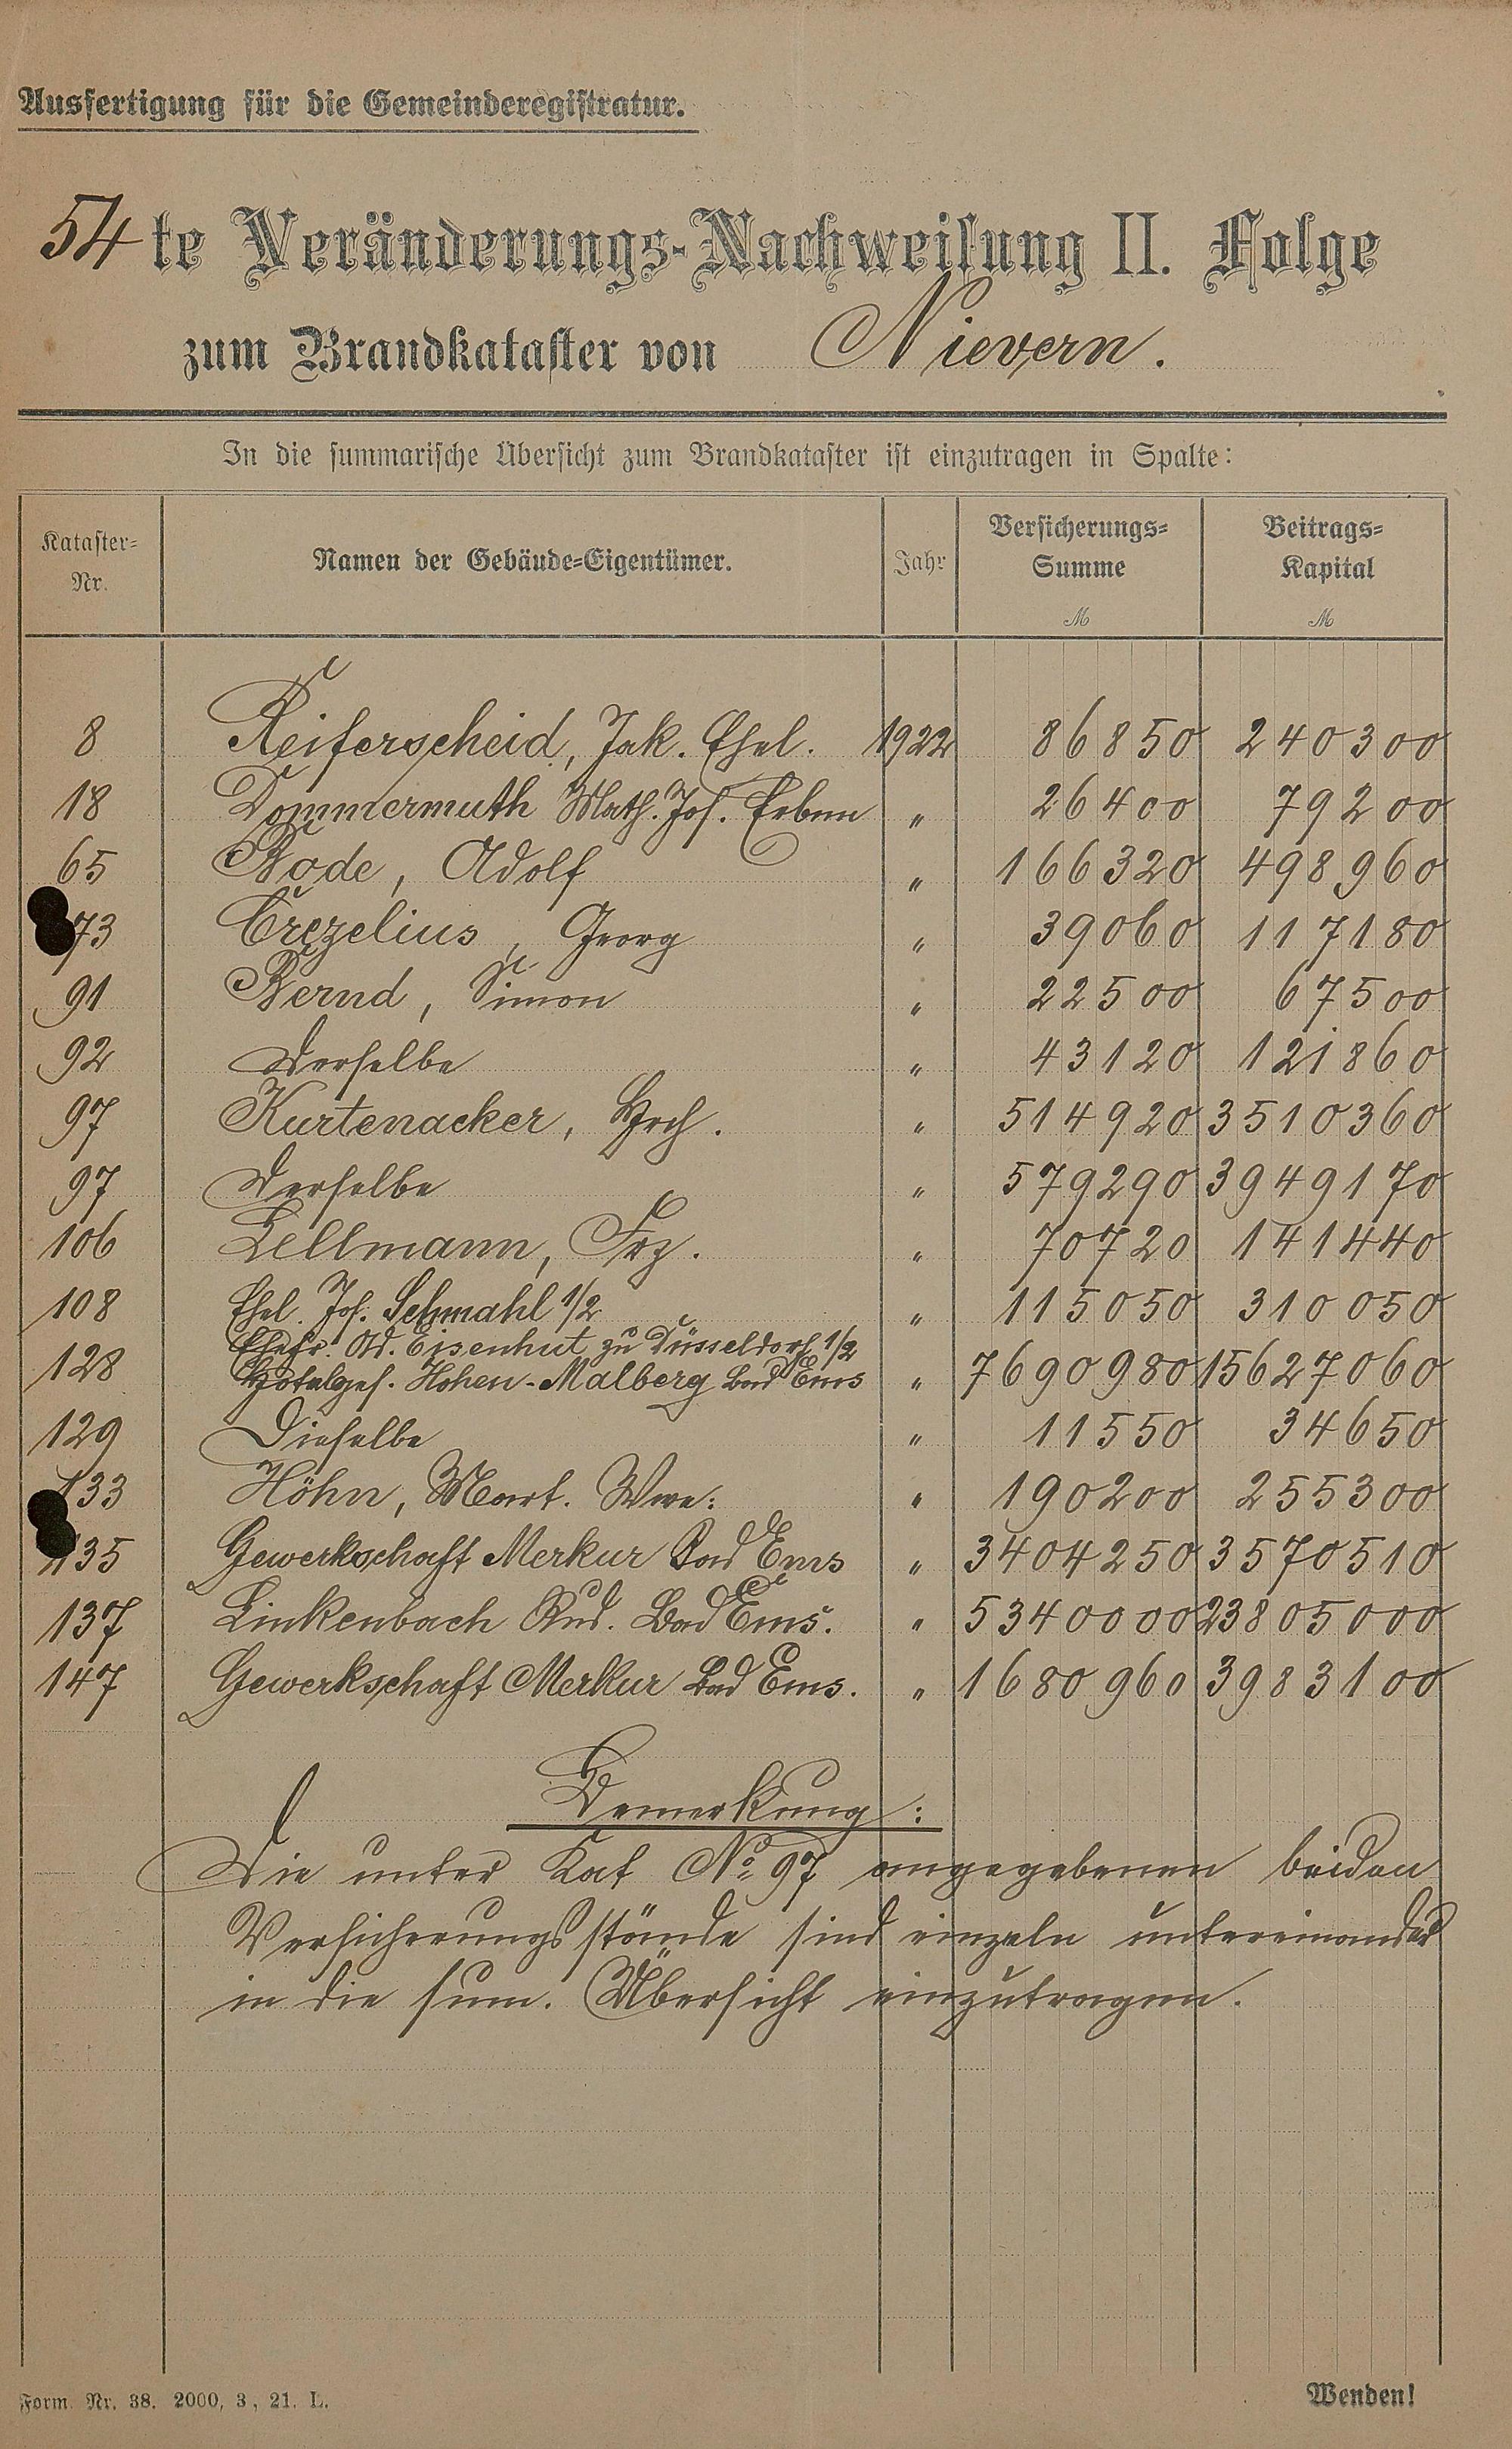 Ausfertigung für die Gemeinderegistratur.
54te Veränderungs-Nachweisung II. Folge
zum Brandkataster von Nievern.
In die summarische Übersicht zum Brandkataster ist einzutragen in Spalte:
Kataster-Nr. Namen der Gebäude-Eigentümer. Jahr Versicherungs-Summe M Beitrags-Kapital M
8 Reiferscheid, Jak. Ehel. 1922 86850 240300
18 Dommermuth Math. Jos. Erben " 26400 79200
65 Bode, Adolf " 166320 498960
73 Crezelius, Georg " 39060 117180
91 Bernd, Simon " 22500 67500
92 Derselbe " 43120 121860
97 Kurtenacker, Hrch. " 514920 3510360
97 Derselbe " 579290 3949170
106 Lellmann, Frz. " 70720 141440
108 Ehel. Jos. Schmahl 1/2 " 115050 310050
Ehefr. Ad. Eisenhut zu Düsseldorf 1/2
128 Hotelges. Hohen-Malberg Bad Ems " 7690980 15627060
129 Dieselbe " 11550 34650
133 Höhn, Mart. Wwe: " 190200 255300
135 Gewerkschaft Merkur Bad Ems " 3404250 3570510
137 Linkenbach Rud. Bad Ems. " 5340000 23805000
147 Gewerkschaft Merkur Bad Ems. " 1680960 3983100
Bemerkung:
Die unter Kat No. 97 angegebenen beiden
Versicherungsstände sind einzeln untereinander
in die sum. Übersicht einzutragen.
Form. Nr. 38. 2000, 3, 21. L.
Wenden!